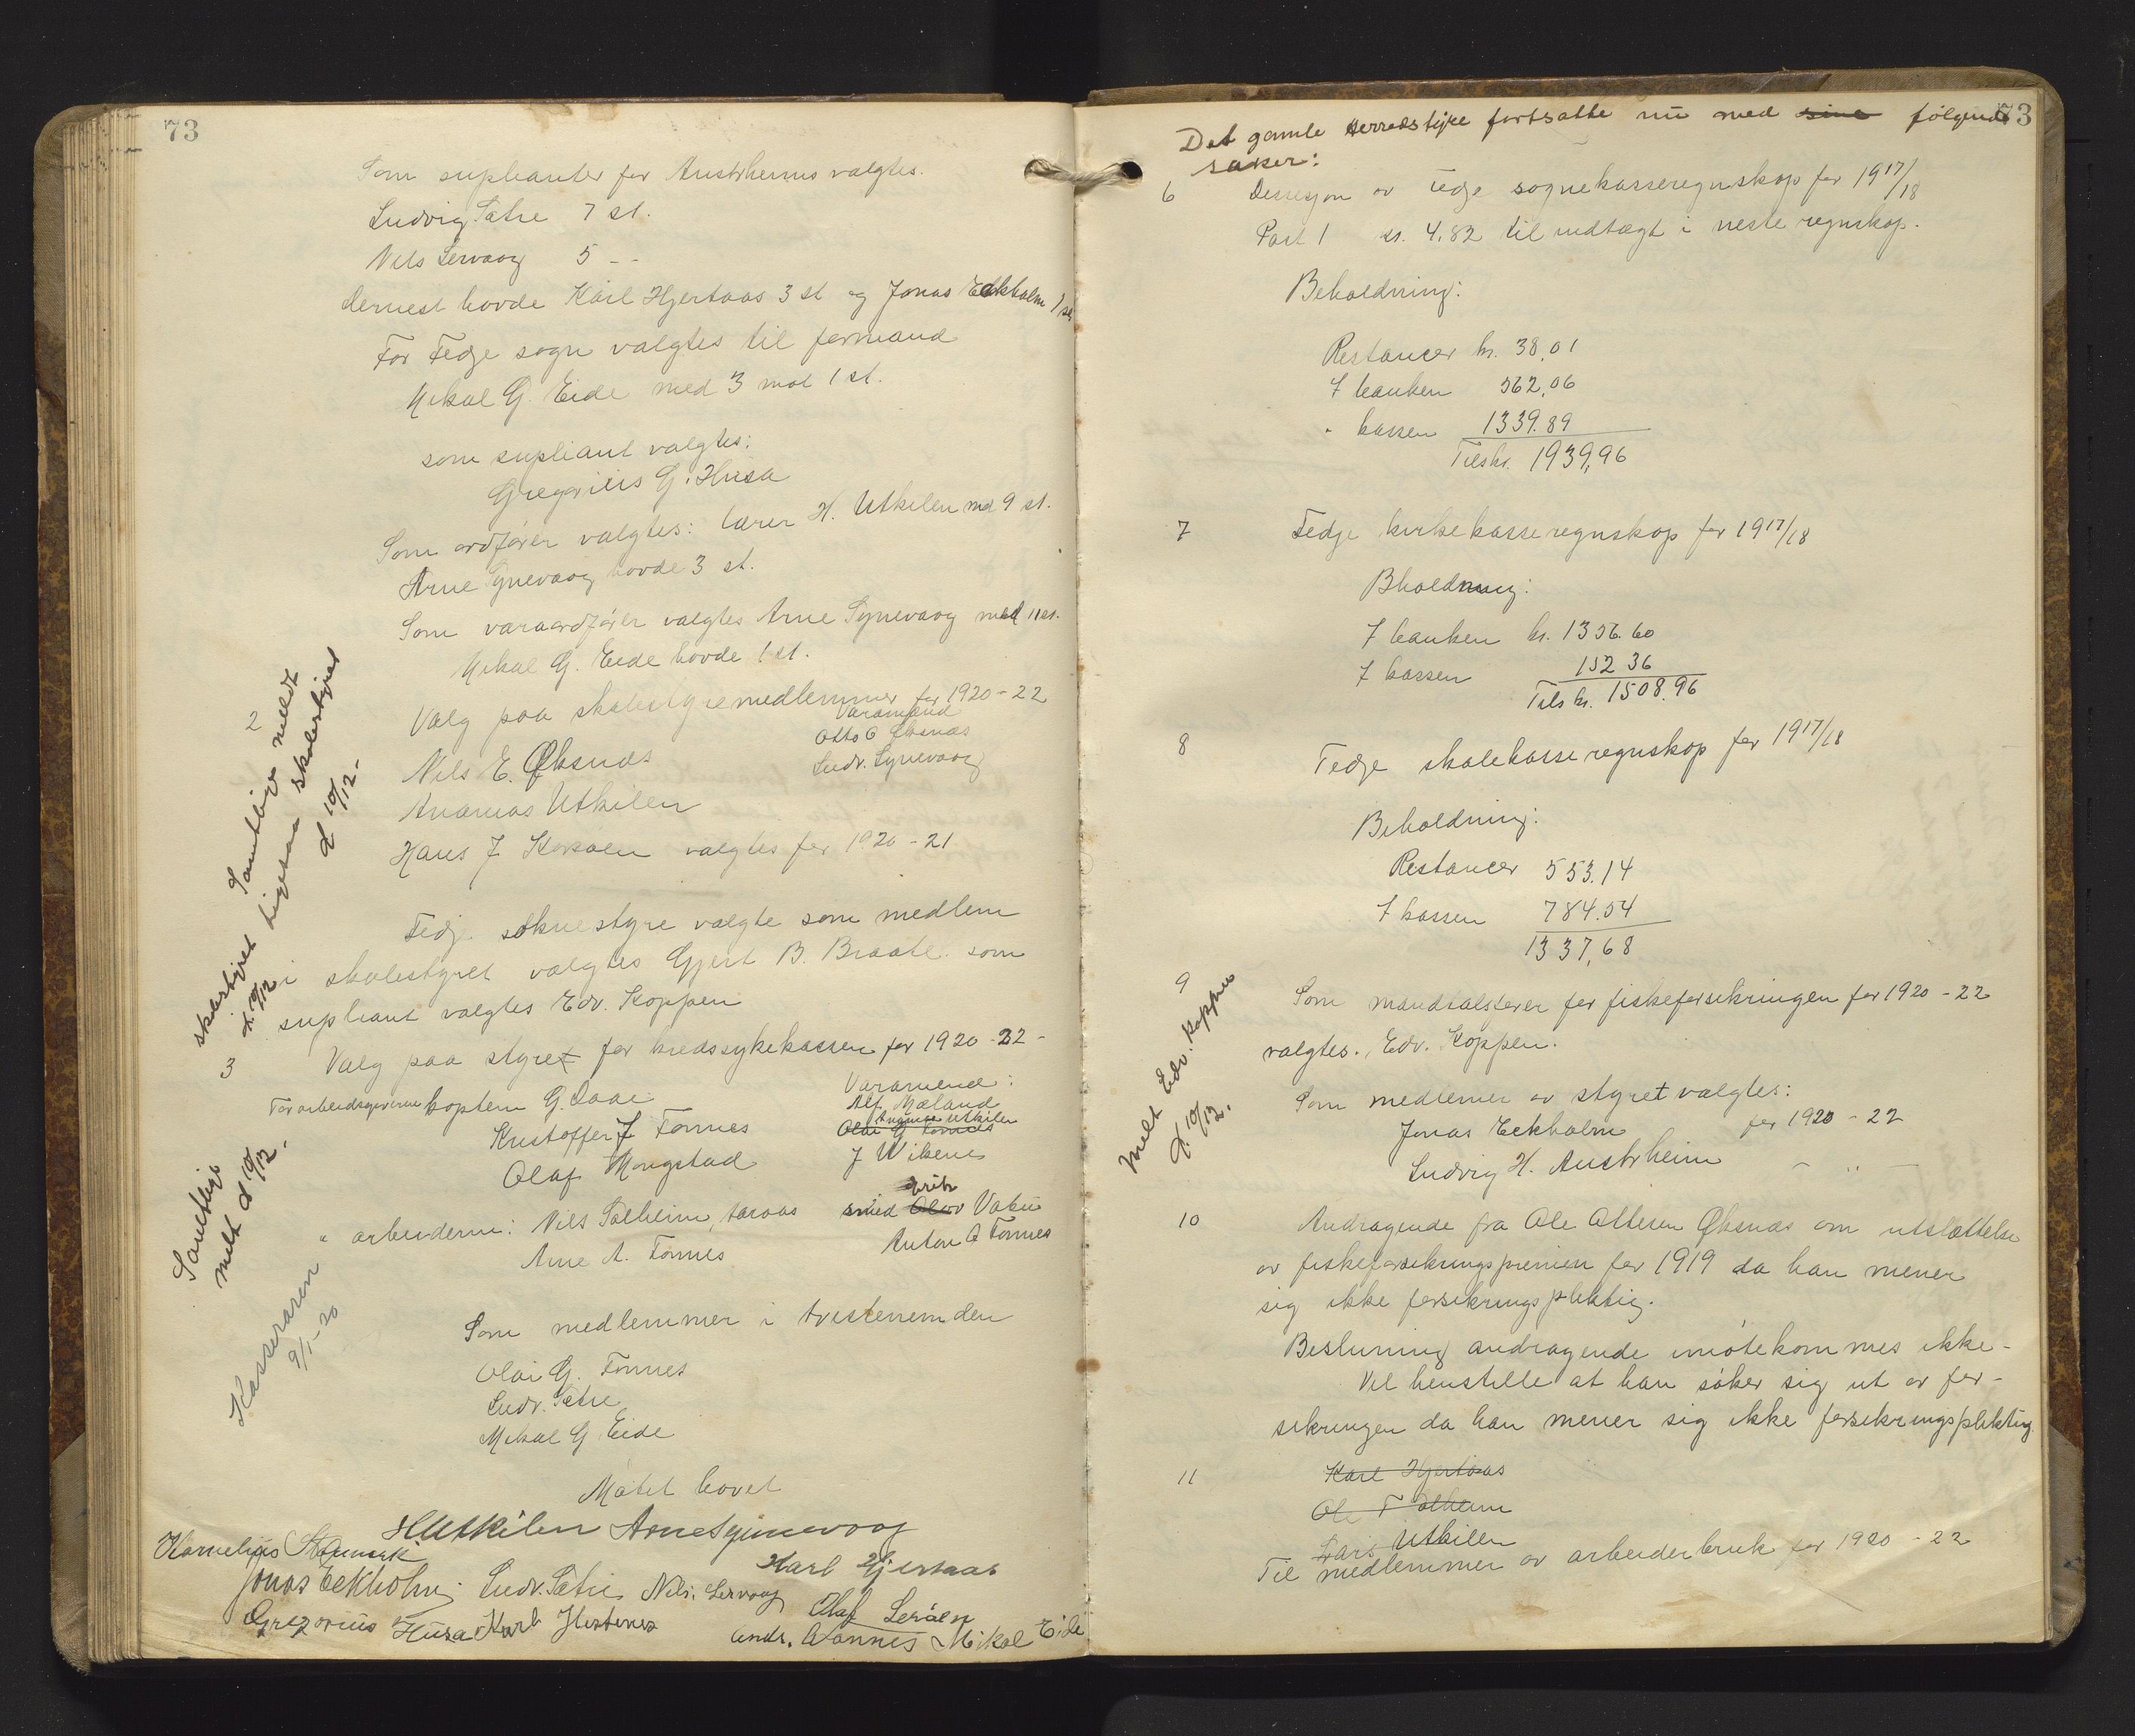 73
Som supleanter for Austrheims valgtes.
Ludvig Sætre 7 st.
Nils Lervaag 5 - -
dernest havde Karl Hjertaas 3 st og Jonas Eckholm 1 st
For Fedje sogn valgtes til formand
Mikal G. Eide med 3 mot 1 st.
som supleant valgtes:
Gregorius G. Husa
Som ordfører valgtes: lærer H. Utkilen med 9 st.
Arne Synevaag havde 3 st.
Som varaordfører valgtes Arne Synevaag med 11 st.
Mikal G. Eide havde 1 st.
2 Valg paa skolestyremedlemmer for 1920-22
Varamænd
Nils E. Øksnæs Otto O Øksnæs
Ananias Utkilen Ludv. Synevaag
Hans J. valgtes for 1920-21
Samtlige meldt
skolestyret ligesaa skolestyret
d 10/12-
d. 10/12
Fedje soknestyre valgte som medlem
i skolestyret valgtes Gjert B. Braate. som
supleant valgtes Edv. Koppen
3 Valg paa styret for kredssykekassen for 1920-22-
Varamænd:
For arbeidsgiverne kaptein G. Daae Alf. Mæland
Ananias Utkilen
Kristoffer J. Fonnes Olai G Fonnes
Olaf Mongstad J Wiken
Erik
" arbeiderne: Nils Solheim, Aaraas smed Olav Vabø
Arne A. Fonnes Anton A Fonnes
Samtlige
melt d 10/12.
Kasseraren
9/1-20
Som medlemmer i tvistenemden
Olai G. Fonnes
Ludv. Sætre
Mikal G Eide
Møtet hævet
HUtkilen Arne Synnevaag
Kornelius Karl Hjertaas
Jonas Eckholm. Ludv. Sætre Nils. Lervaag
Gregorius Husa Karl Hestenes Olaf Lerøen
Andr. Mikal Eide
73
Det gamle herredstyre fortsatte nu med sine følgende
saker:
6 Desisjon av Fedje sognekasseregnskap for 1917/18
Post 1 kr. 4.82 til indtægt i neste regnskap.
Beholdning:
Restancer kr. 38,01
I banken 562,06
" kassen 1339.89
Tils kr. 1939,96
7 Fedje kirkekasseregnskap for 1917/18
Bholdning:
I banken kr. 1356.60
I kassen 152 36
Tils kr. 1508.96
8 Fedje skolekasseregnskap for 1917/18
Beholdning:
Restancer 553.14
I kassen 784.54
1337,68
9 Som mandtalsfører for fiskeforsikringen for 1920-22
valgtes. Edv. Koppen.
Melt Edv. Koppen
d. 10/12.
Som medlemer av styret valgtes:
Jonas Eckholm for 1920-22
Ludvig H. Austrheim - " -
10 Andragende fra Ole Ottesen Øksnæs om utslættelse
av fiskeforsikringspremien for 1919 da han mener
sig ikke forsikringspliktig.
Beslutning andragende imøtekommes ikke-
Vil henstille at han søker sig ut av for-
sikringen da han mener sig ikke forsikringspliktig
11 Karl Hjertaas
Ole T Solheim
Lars Utkilen
Til medlemmer av arbeiderbruk for 1920-22